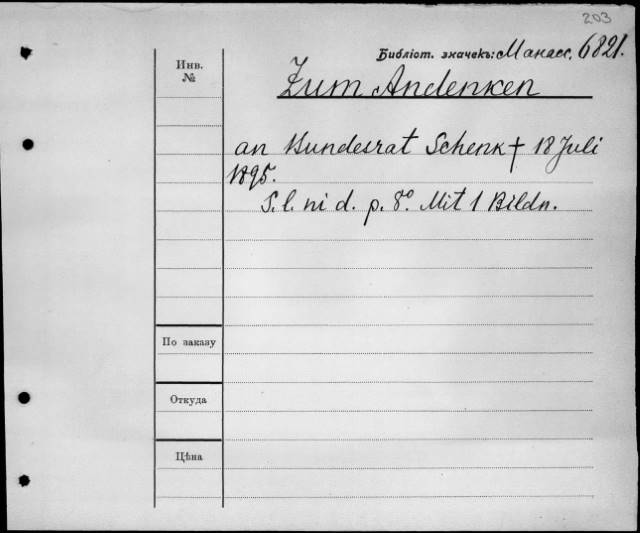 203
Библіот. значекъ: Манасс. 6821.
Инв.
№
Zum Andenken
an Bundesrat Schenk † 18 Juli
1895.
S. l. ni d. p. 8° Mit 1 Bildn.
По заказу
Откуда
Цѣна